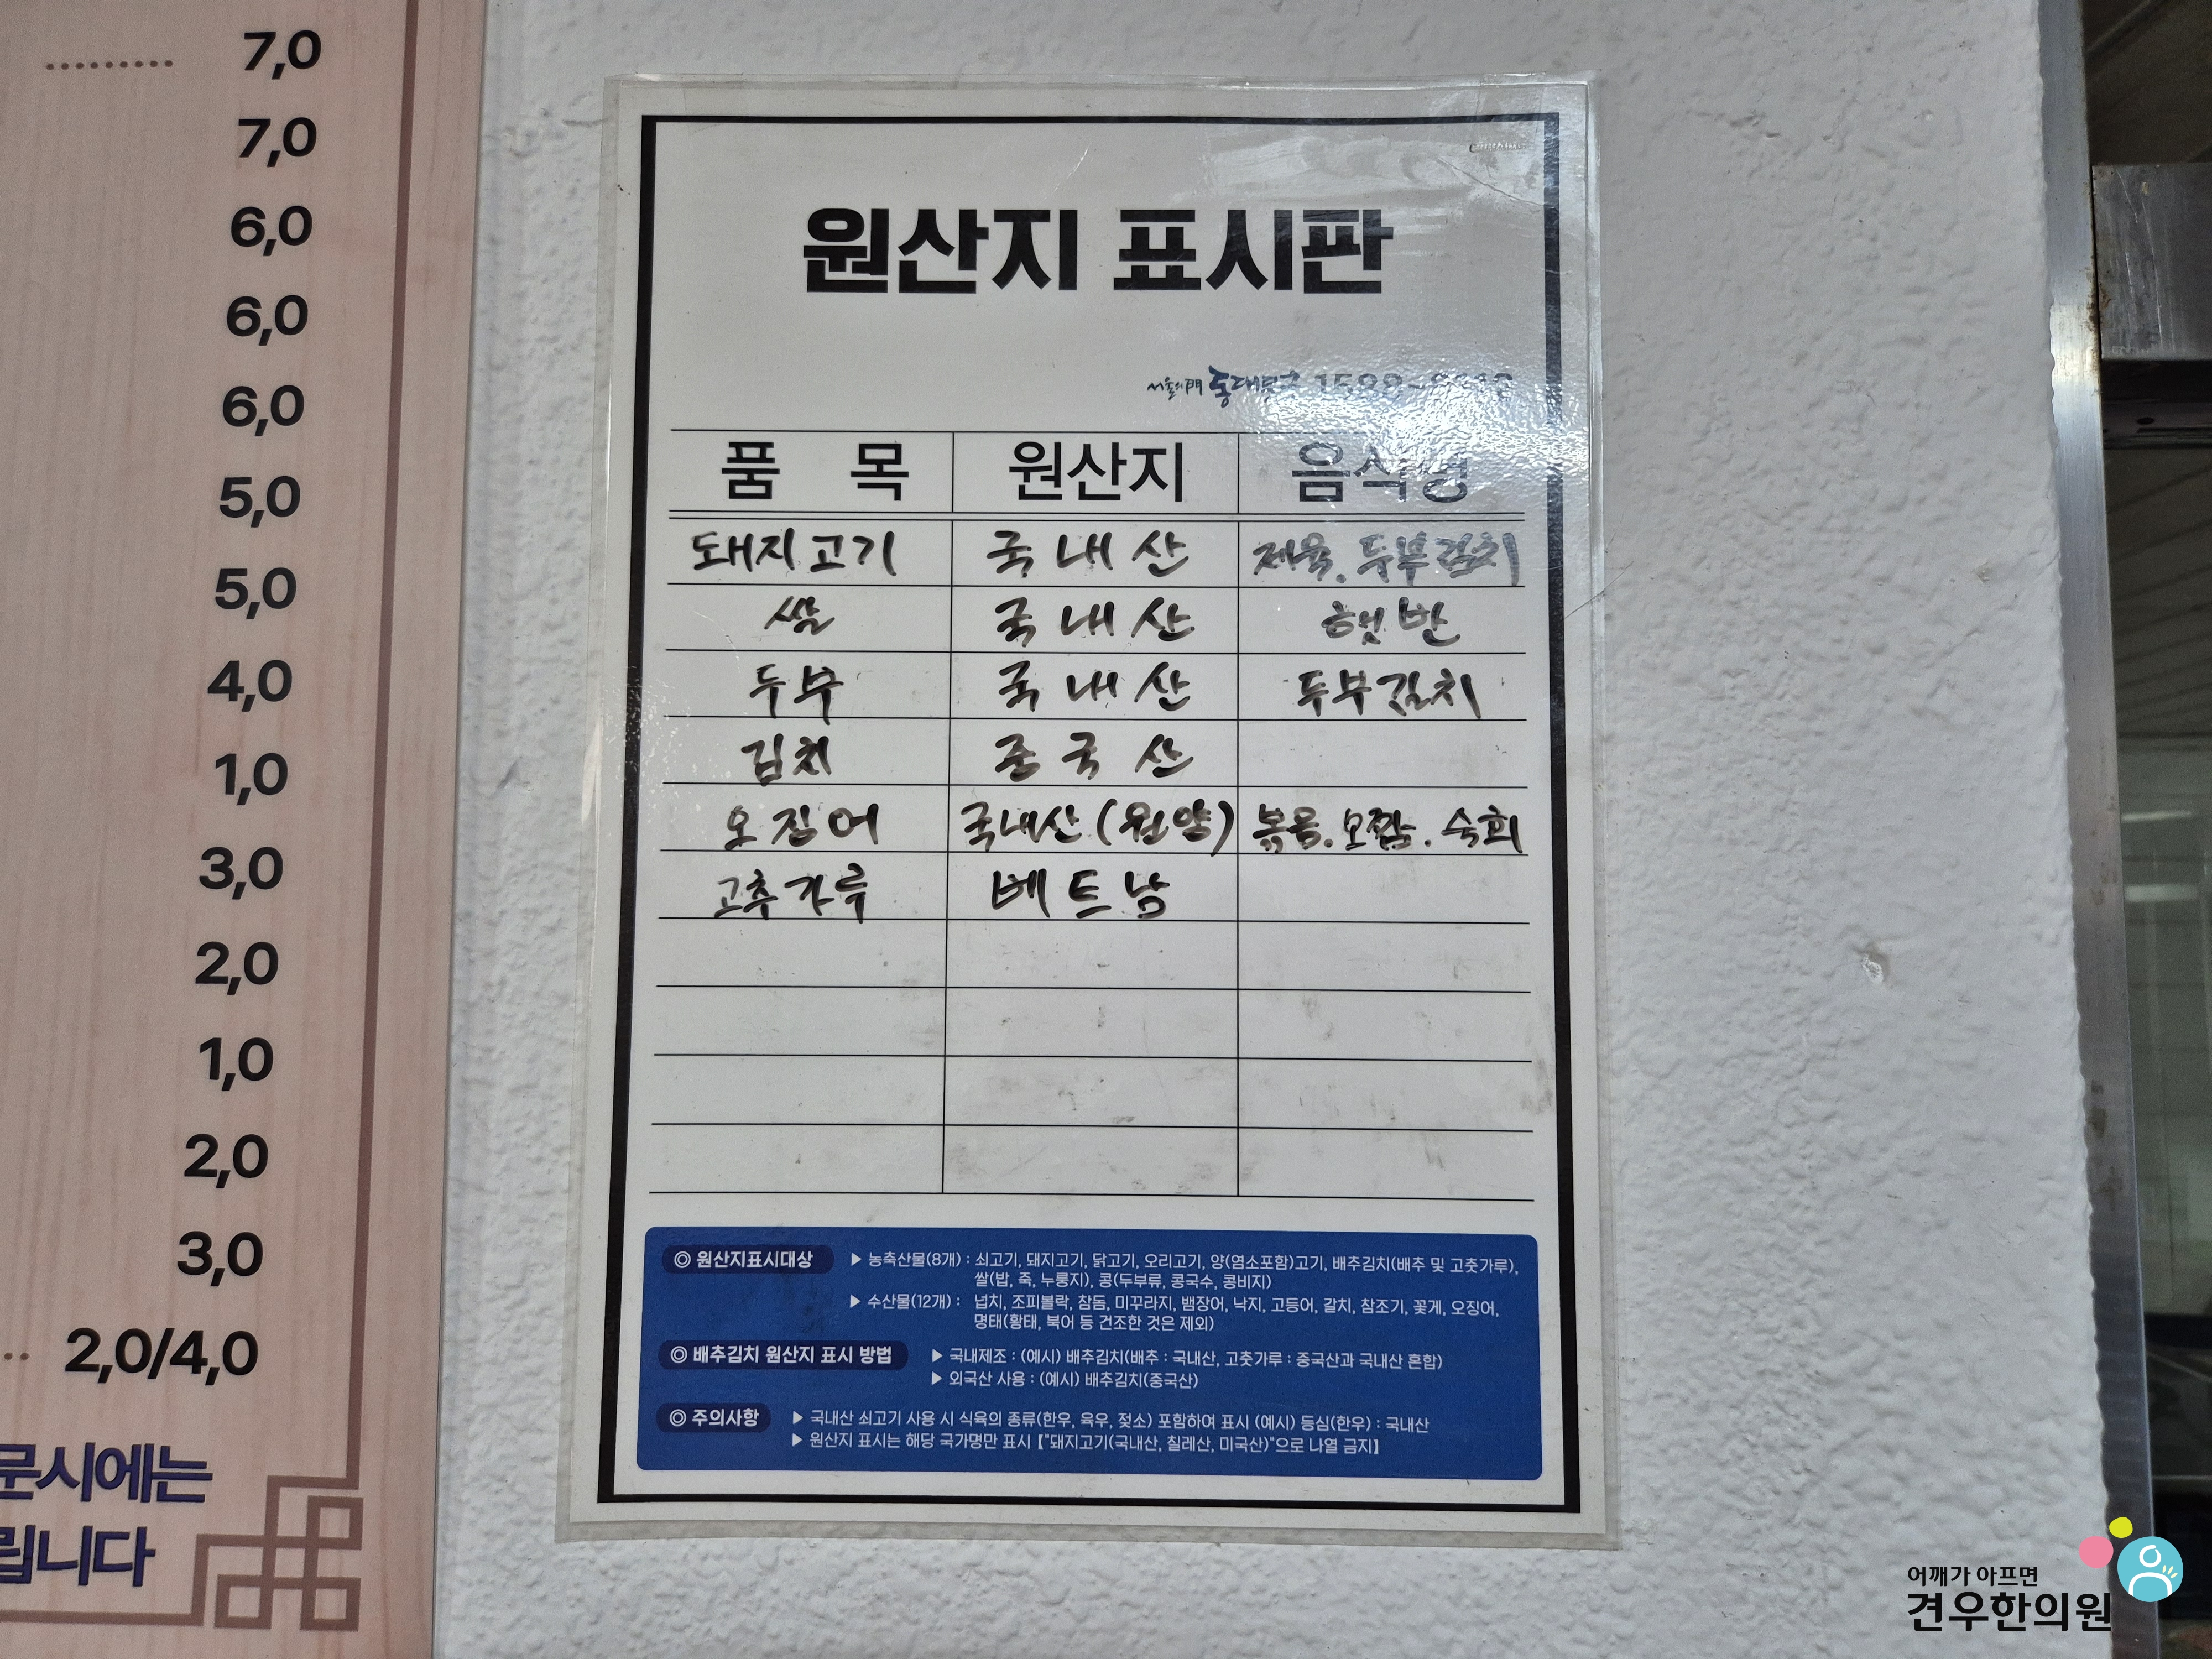 7,0
7,0
6,0
6,0
6,0
5,0
5,0
4,0
1,0
3,0
2,0
1,0
2,0
3,0
2,0/4,0
문시에는
립니다
원산지 표시판
서울의門 동대문구
품 목 원산지 음식명
돼지고기 국내산 제육. 두부김치
쌀 국내산 햇반
두부 국내산 두부김치
김치 중국산
오징어 국내산(원양) 볶음. 오짬. 숙회
고추가루 베트남
◎ 원산지표시대상 ▶ 농축산물(8개) : 쇠고기, 돼지고기, 닭고기, 오리고기, 양(염소포함)고기, 배추김치(배추 및 고춧가루),
쌀(밥, 죽, 누룽지), 콩(두부류, 콩국수, 콩비지)
▶ 수산물(12개) : 넙치, 조피볼락, 참돔, 미꾸라지, 뱀장어, 낙지, 고등어, 갈치, 참조기, 꽃게, 오징어,
명태(황태, 북어 등 건조한 것은 제외)
◎ 배추김치 원산지 표시 방법 ▶ 국내제조 : (예시) 배추김치(배추 : 국내산, 고춧가루 : 중국산과 국내산 혼합)
▶ 외국산 사용 : (예시) 배추김치(중국산)
◎ 주의사항 ▶ 국내산 쇠고기 사용 시 식육의 종류(한우, 육우, 젖소) 포함하여 표시 (예시) 등심(한우) : 국내산
▶ 원산지 표시는 해당 국가명만 표시 【"돼지고기(국내산, 칠레산, 미국산)"으로 나열 금지】
어깨가 아프면
견우한의원